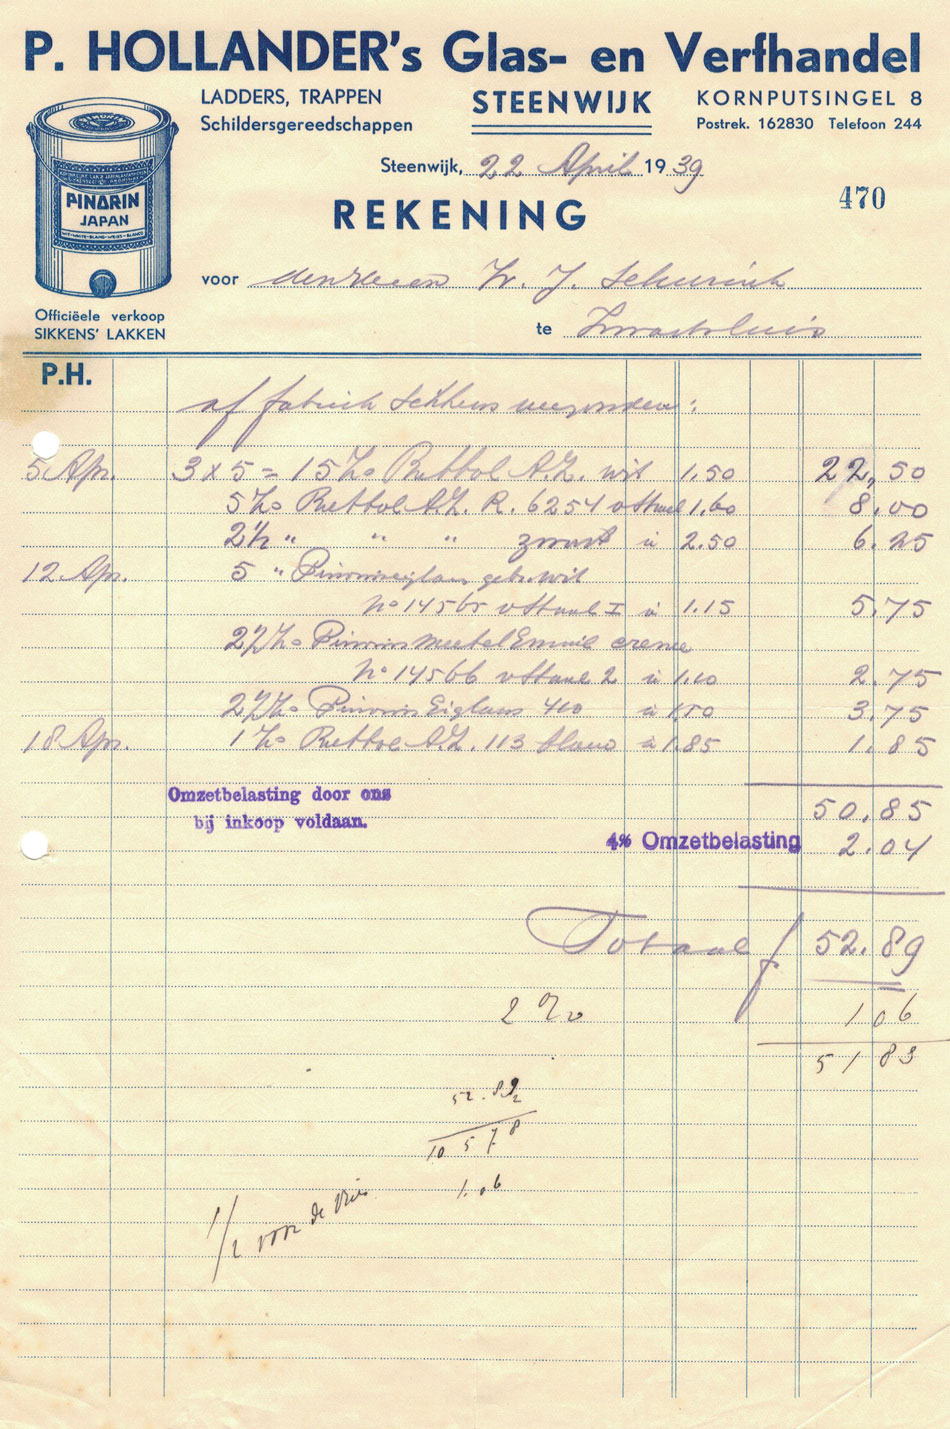 P. HOLLANDER's Glas- en Verfhandel
LADDERS, TRAPPEN
Schildersgereedschappen
STEENWIJK
KORNPUTSINGEL 8
Postrek. 162830 Telefoon 244
Steenwijk, 22 April 1939
470
REKENING
PINARIN
JAPAN
voor den Heeren W. J. Schurink
te Zwartsluis
Officiëele verkoop
SIKKENS' LAKKEN
P.H.
af fabriek Sikkens verzonden:
5 Apr. 3 x 5 = 15 Ko Rubbol A.Z. wit 1.50 22,50
5 Ko Rubbol A.Z. R. 6254 v Staal 1.60 8.00
2½ " " " zwart à 2.50 6.25
12 Apr. 5 " gebr. wit
No 14565 v Staal I à 1.15 5.75
2½ Ko creme
No 14566 v Staal 2 à 1.10 2.75
2½ Ko Eiglans 410 à 1.50 3.75
18 Apr. 1 Ko Rubbol A.Z. 113 blauw à 1.85 1.85
Omzetbelasting door ons
bij inkoop voldaan.
50.85
4% Omzetbelasting 2.04
Totaal f 52.89
2 % 106
5183
52.89
2
10 5 7 8
1.06
1/2 voor de Vries